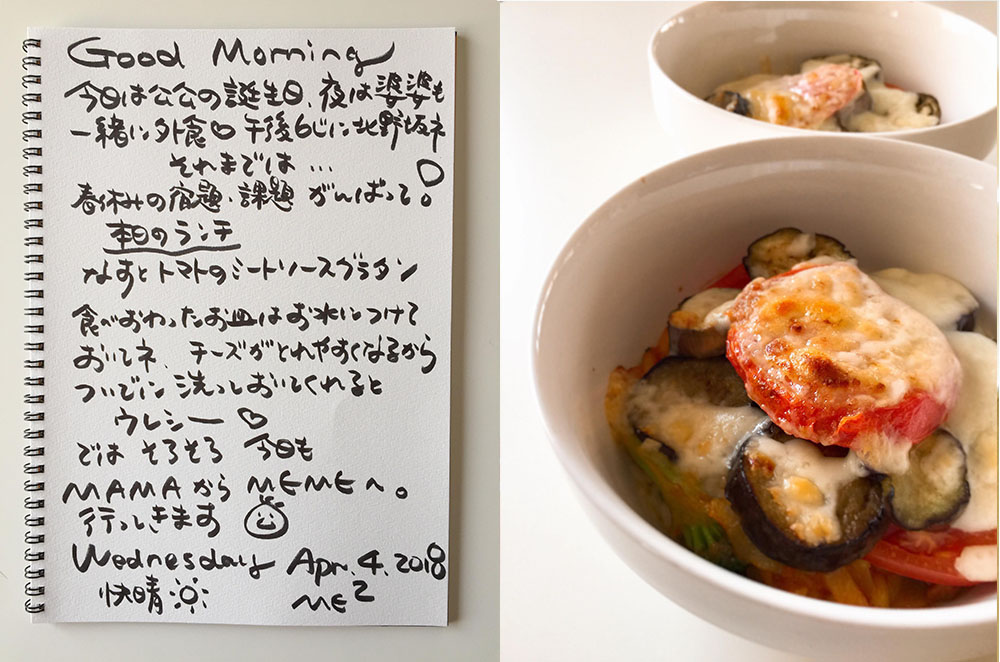 Good Morning
今日は公公の誕生日、夜は婆婆も
一緒に外食♡ 午後6じに北野坂ネ
それまでは…
春休みの宿題・課題 がんばって。
本日のランチ
なすとトマトのミートソースグラタン
食べおわったお皿はお水につけて
おいてネ、チーズがとれやすくなるから
ついでに洗っておいてくれると
ウレシー♡
では そろそろ 今日も
MAMAから MEMEへ。
行ってきます
Wednesday Apr. 4. 2018
快晴
ME2